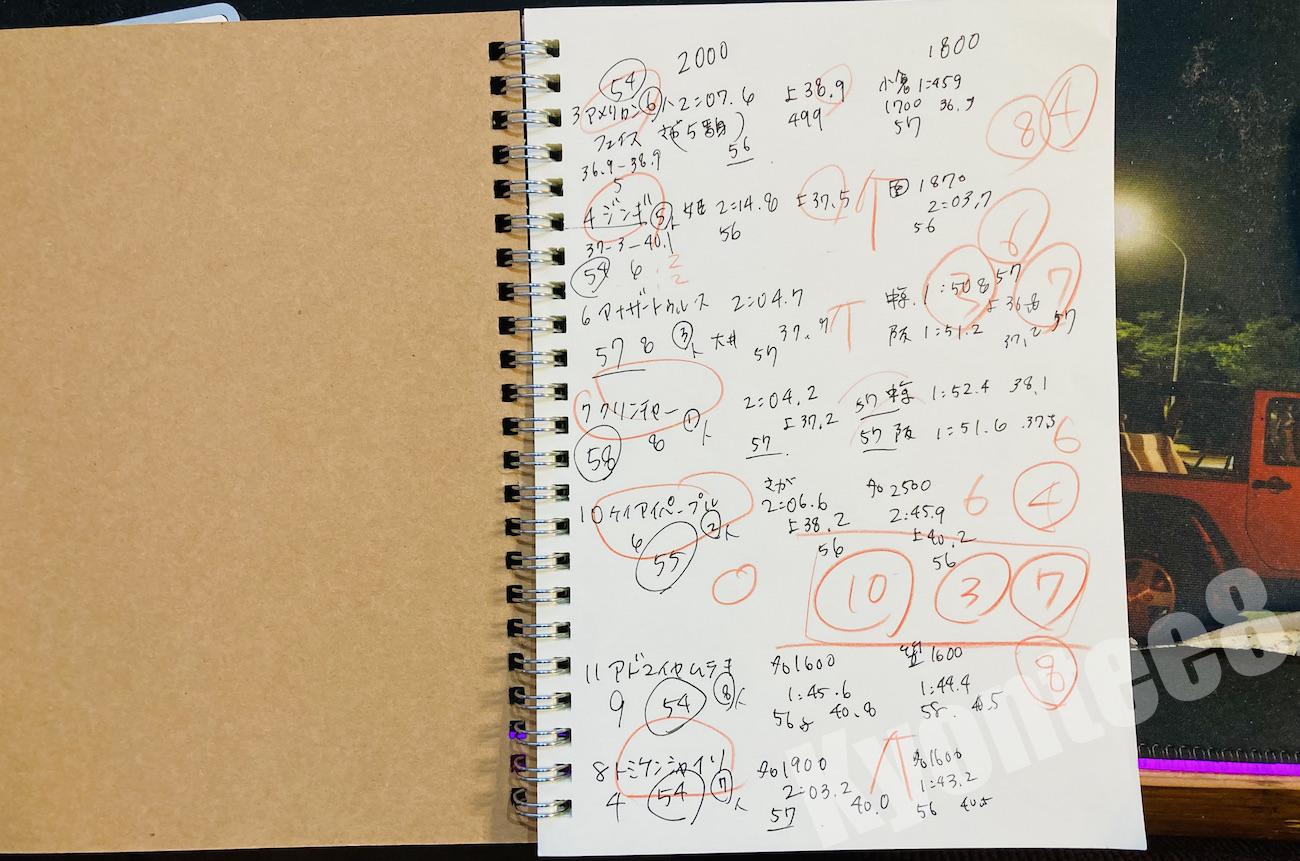 2000 1800
54
3アメリカン ⑥人 2=07.6 上38.9 小倉 1=459
フェイス 499 1700 36.9
56 57
36.9-38.9
5
8 4
4 ジンギ ⑤人 姫 2=14.8 上37.5 1870
56 2=03.7
37-3-40.1 56
54 6 2
2
6
6 アナザートゥルス 2=04.7 1=508 57
3 7
上36.8
57 8 ③人 大井 57 37.7 阪 1=51.2 37.2 57
7 クリンチャー 2=04.2 57 1=52.4 38.1
8 ①人 57 上37.2 57 阪 1=51.6 37.5
58 6
10 ケイアイパープル さが 名2500 6 4
6 ②人 2=06.6 2=45.9
55 上38.2 上40.2
56 56
10 3 7
11 アドマイヤムテキ 名1600 1600 8
9 54 ⑧人 1=45.6 1=44.4
56 40.8 58. 40.5
8 トミケンシャイリ 名1900 名1600
4 54 ⑦人 2=03.2 1=43.2
57 40.0 56 40.5
Kyontee8